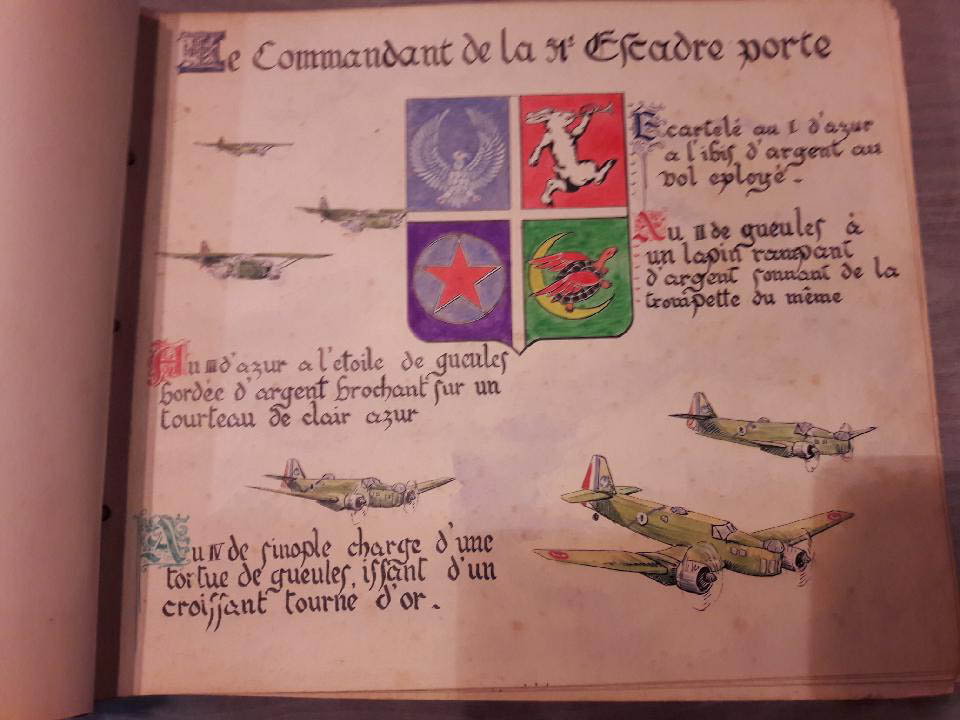 Le Commandant de la Escadre porte
Ecartelé au I d'azur
a l'ibis d'argent au
vol eployé.
Au II de gueules à
un lapin rampant
d'argent sonnant de la
trompette du même
Au III d'azur a l'etoile de gueules
bordee d argent brochant sur un
tourteau de clair azur
Au IV de sinople charge d'une
tortue de gueules, issant d'un
croissant tourne d'or.